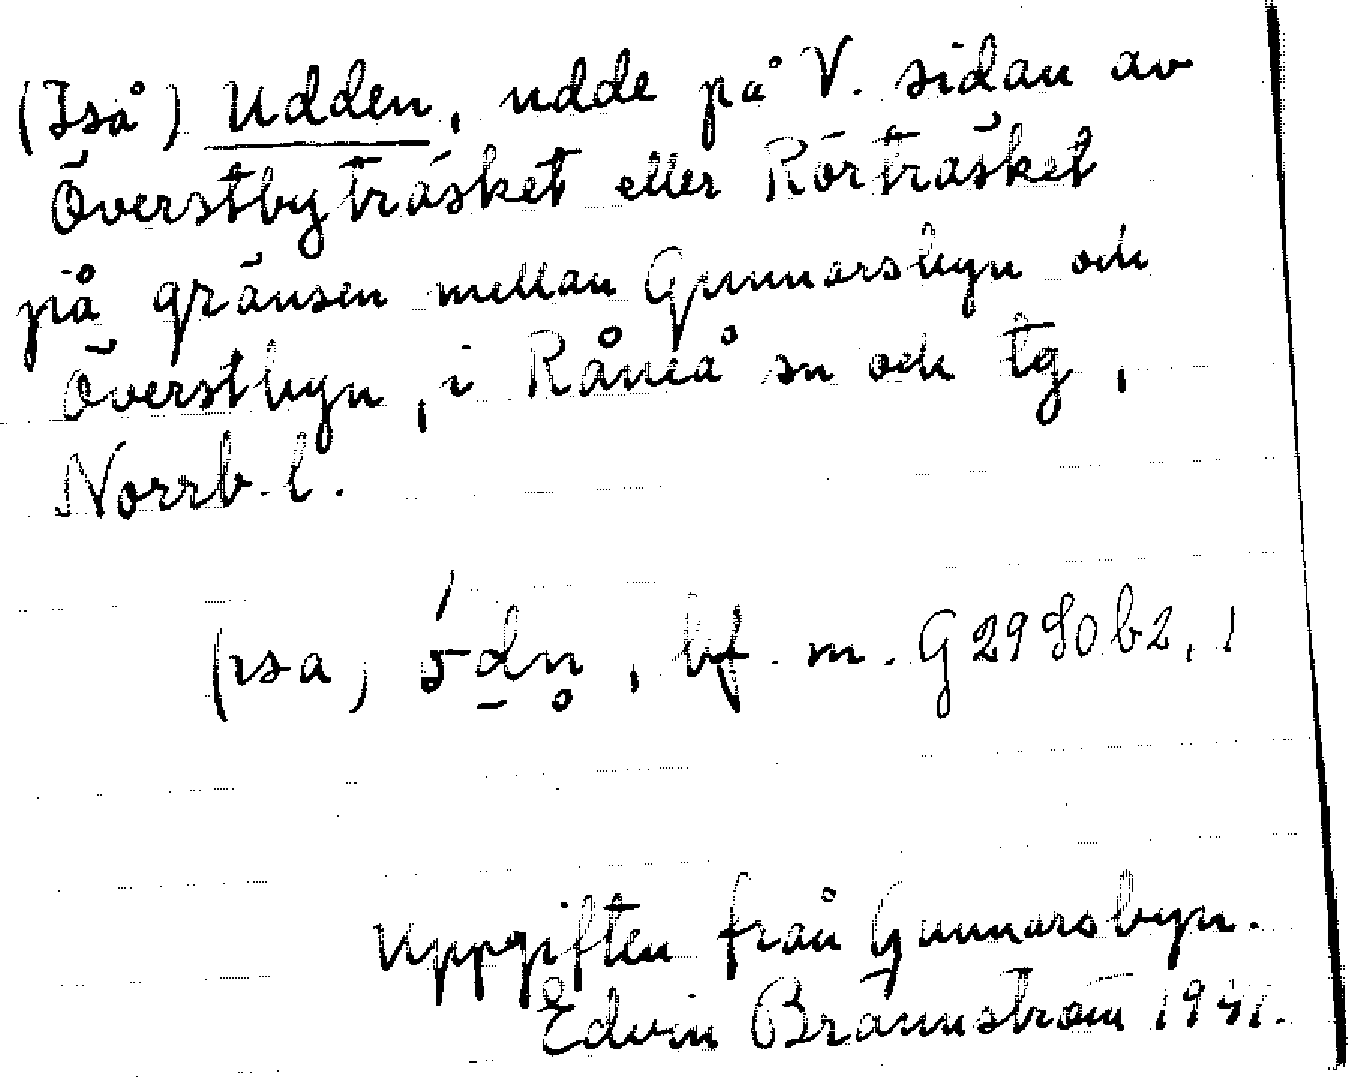 (Iså) Udden, udde på V. sidan av
Överstbyträsket eller Rörträsket
på gränsen mellan Gunnarsbyn och
Överstbyn, i Råneå sn och tg,
Norrb. l.
(ısa) bf. m. G 2980 b2, 1
Uppgiften från Gunnarsbyn.
Edvin Brännström 1941.